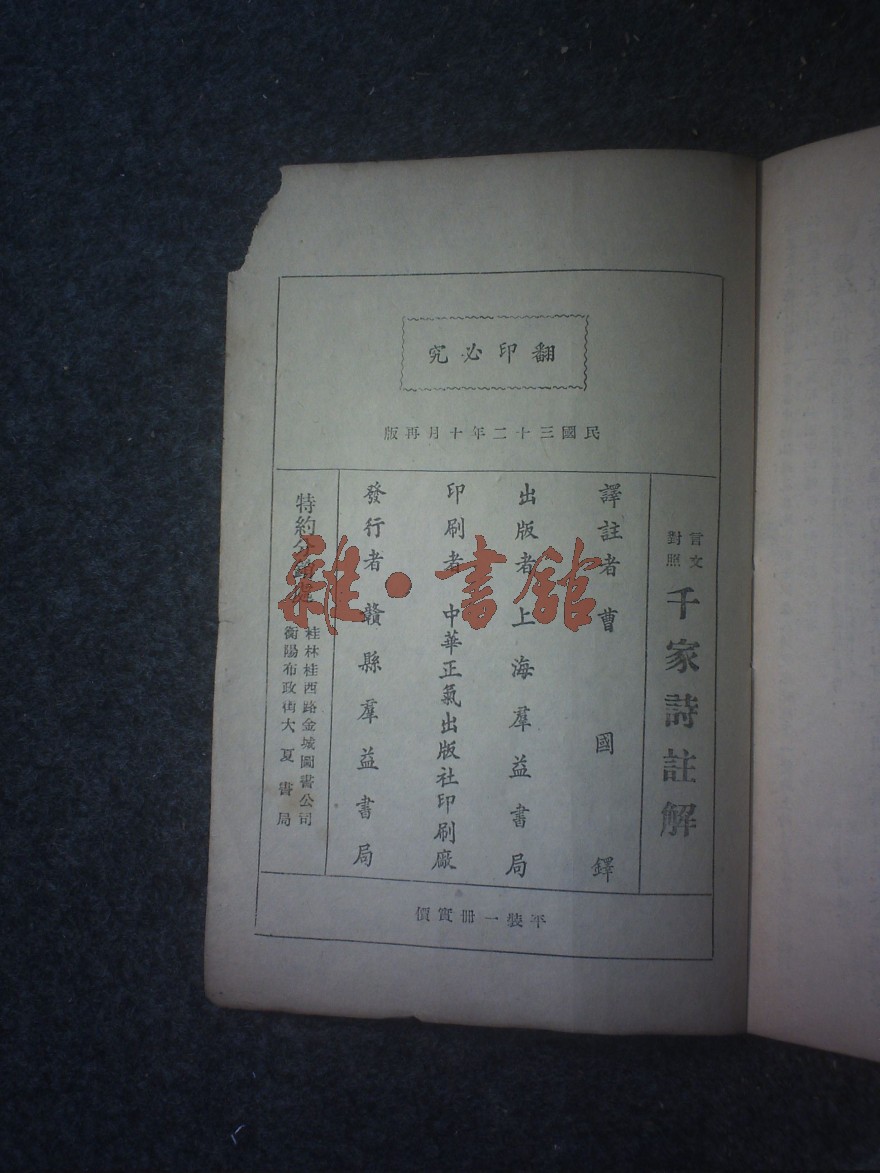 翻印必究
民國三十二年十月再版
言文對照
千家詩註解
譯註者 曹國鐸
出版者 上海羣益書局
印刷者 中華正氣出版社印刷廠
發行者 贛縣羣益書局
特約分銷處
桂林桂西路金城圖書公司
衡陽布政街大夏書局
平裝一冊實價
雜·書館